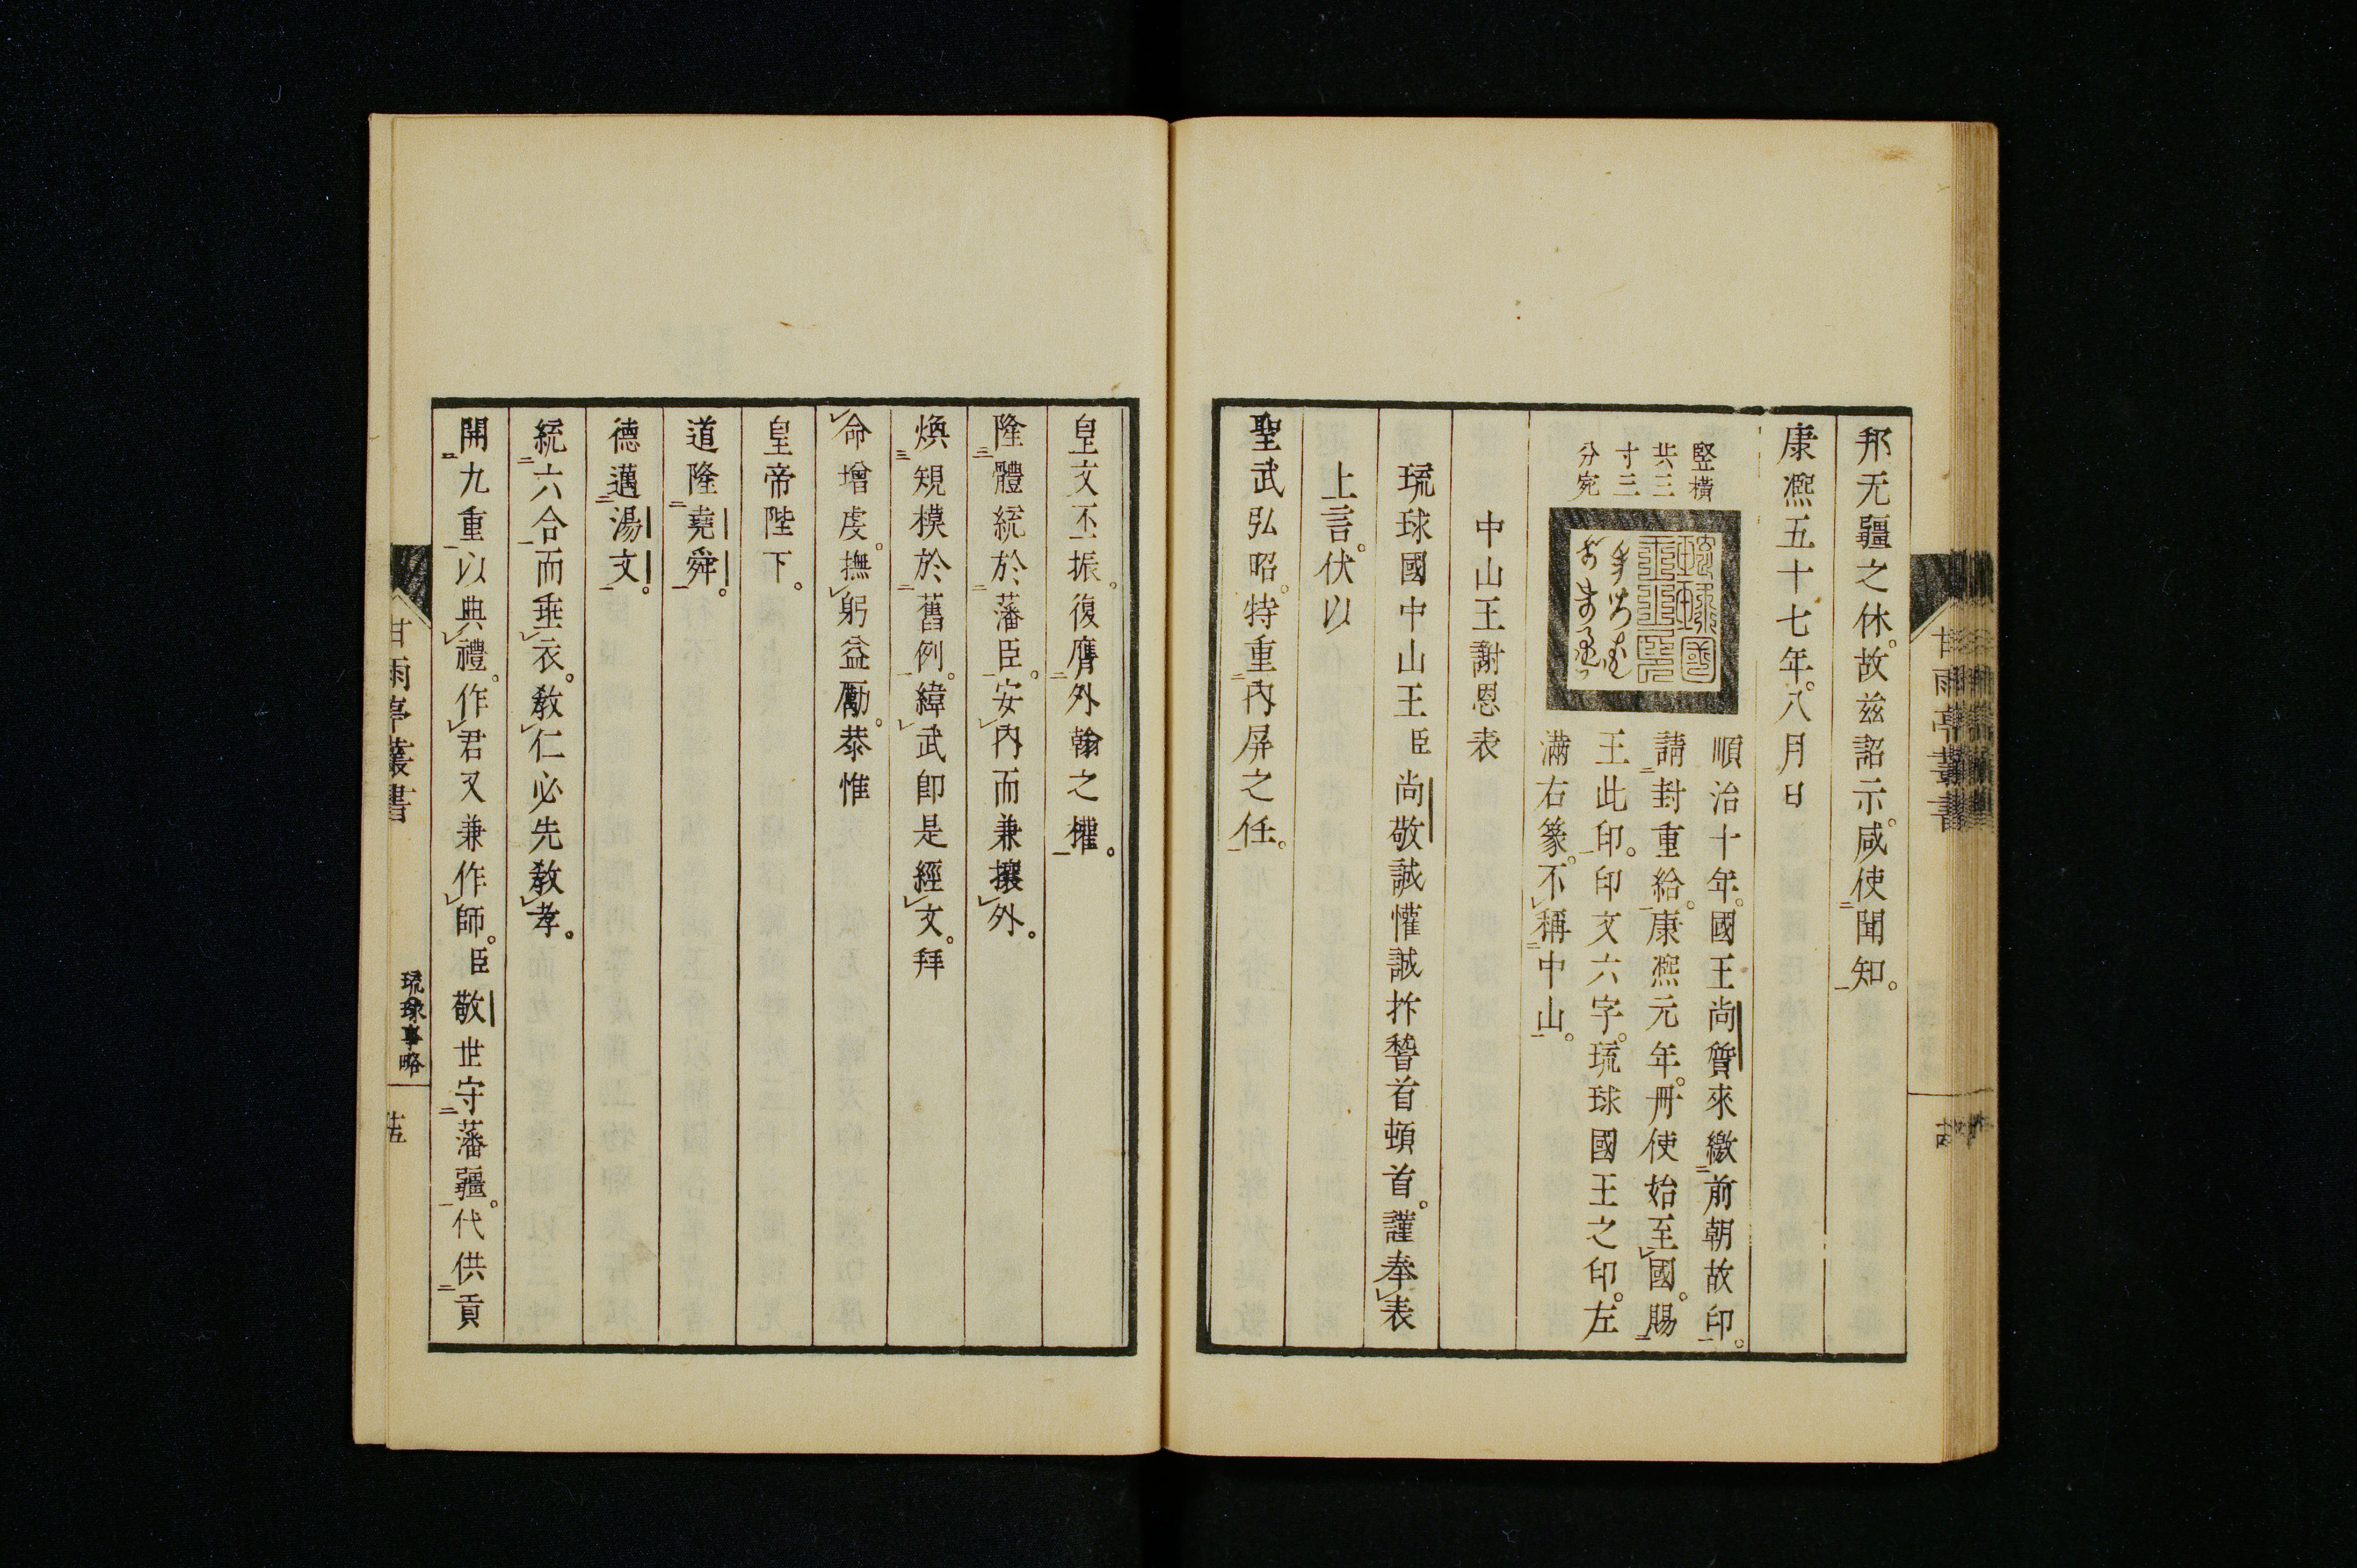 邦无疆之休。故茲詔示。咸使聞知。
康熈五十七年。八月日
竪橫
共三
寸三
分宛
琉球國
王之印
順治十年。國王尚質來繳前朝故印。
請封重給。康熈元年。冊使始至國。賜
王此印。印文六字。琉球國王之印。左
滿右篆。不稱中山。
中山王謝恩表
琉球國中山王臣尚敬誠懽誠抃稽首頓首。謹奉表
上言。伏以
聖武弘昭。特重內屏之任。
甘雨亭叢書
皇文丕振。復膺外翰之權。
隆體統於藩臣。安內而兼攘外。
煥規模於舊例。緯武卽是經文。拜
命增虔。撫躬益勵。恭惟
皇帝陛下。
道隆堯舜。
德邁湯文。
統六合而垂衣。敎仁必先敎孝。
開九重以典禮。作君又兼作師。臣敬世守藩疆。代供貢
甘雨亭叢書
琉球事略
十五